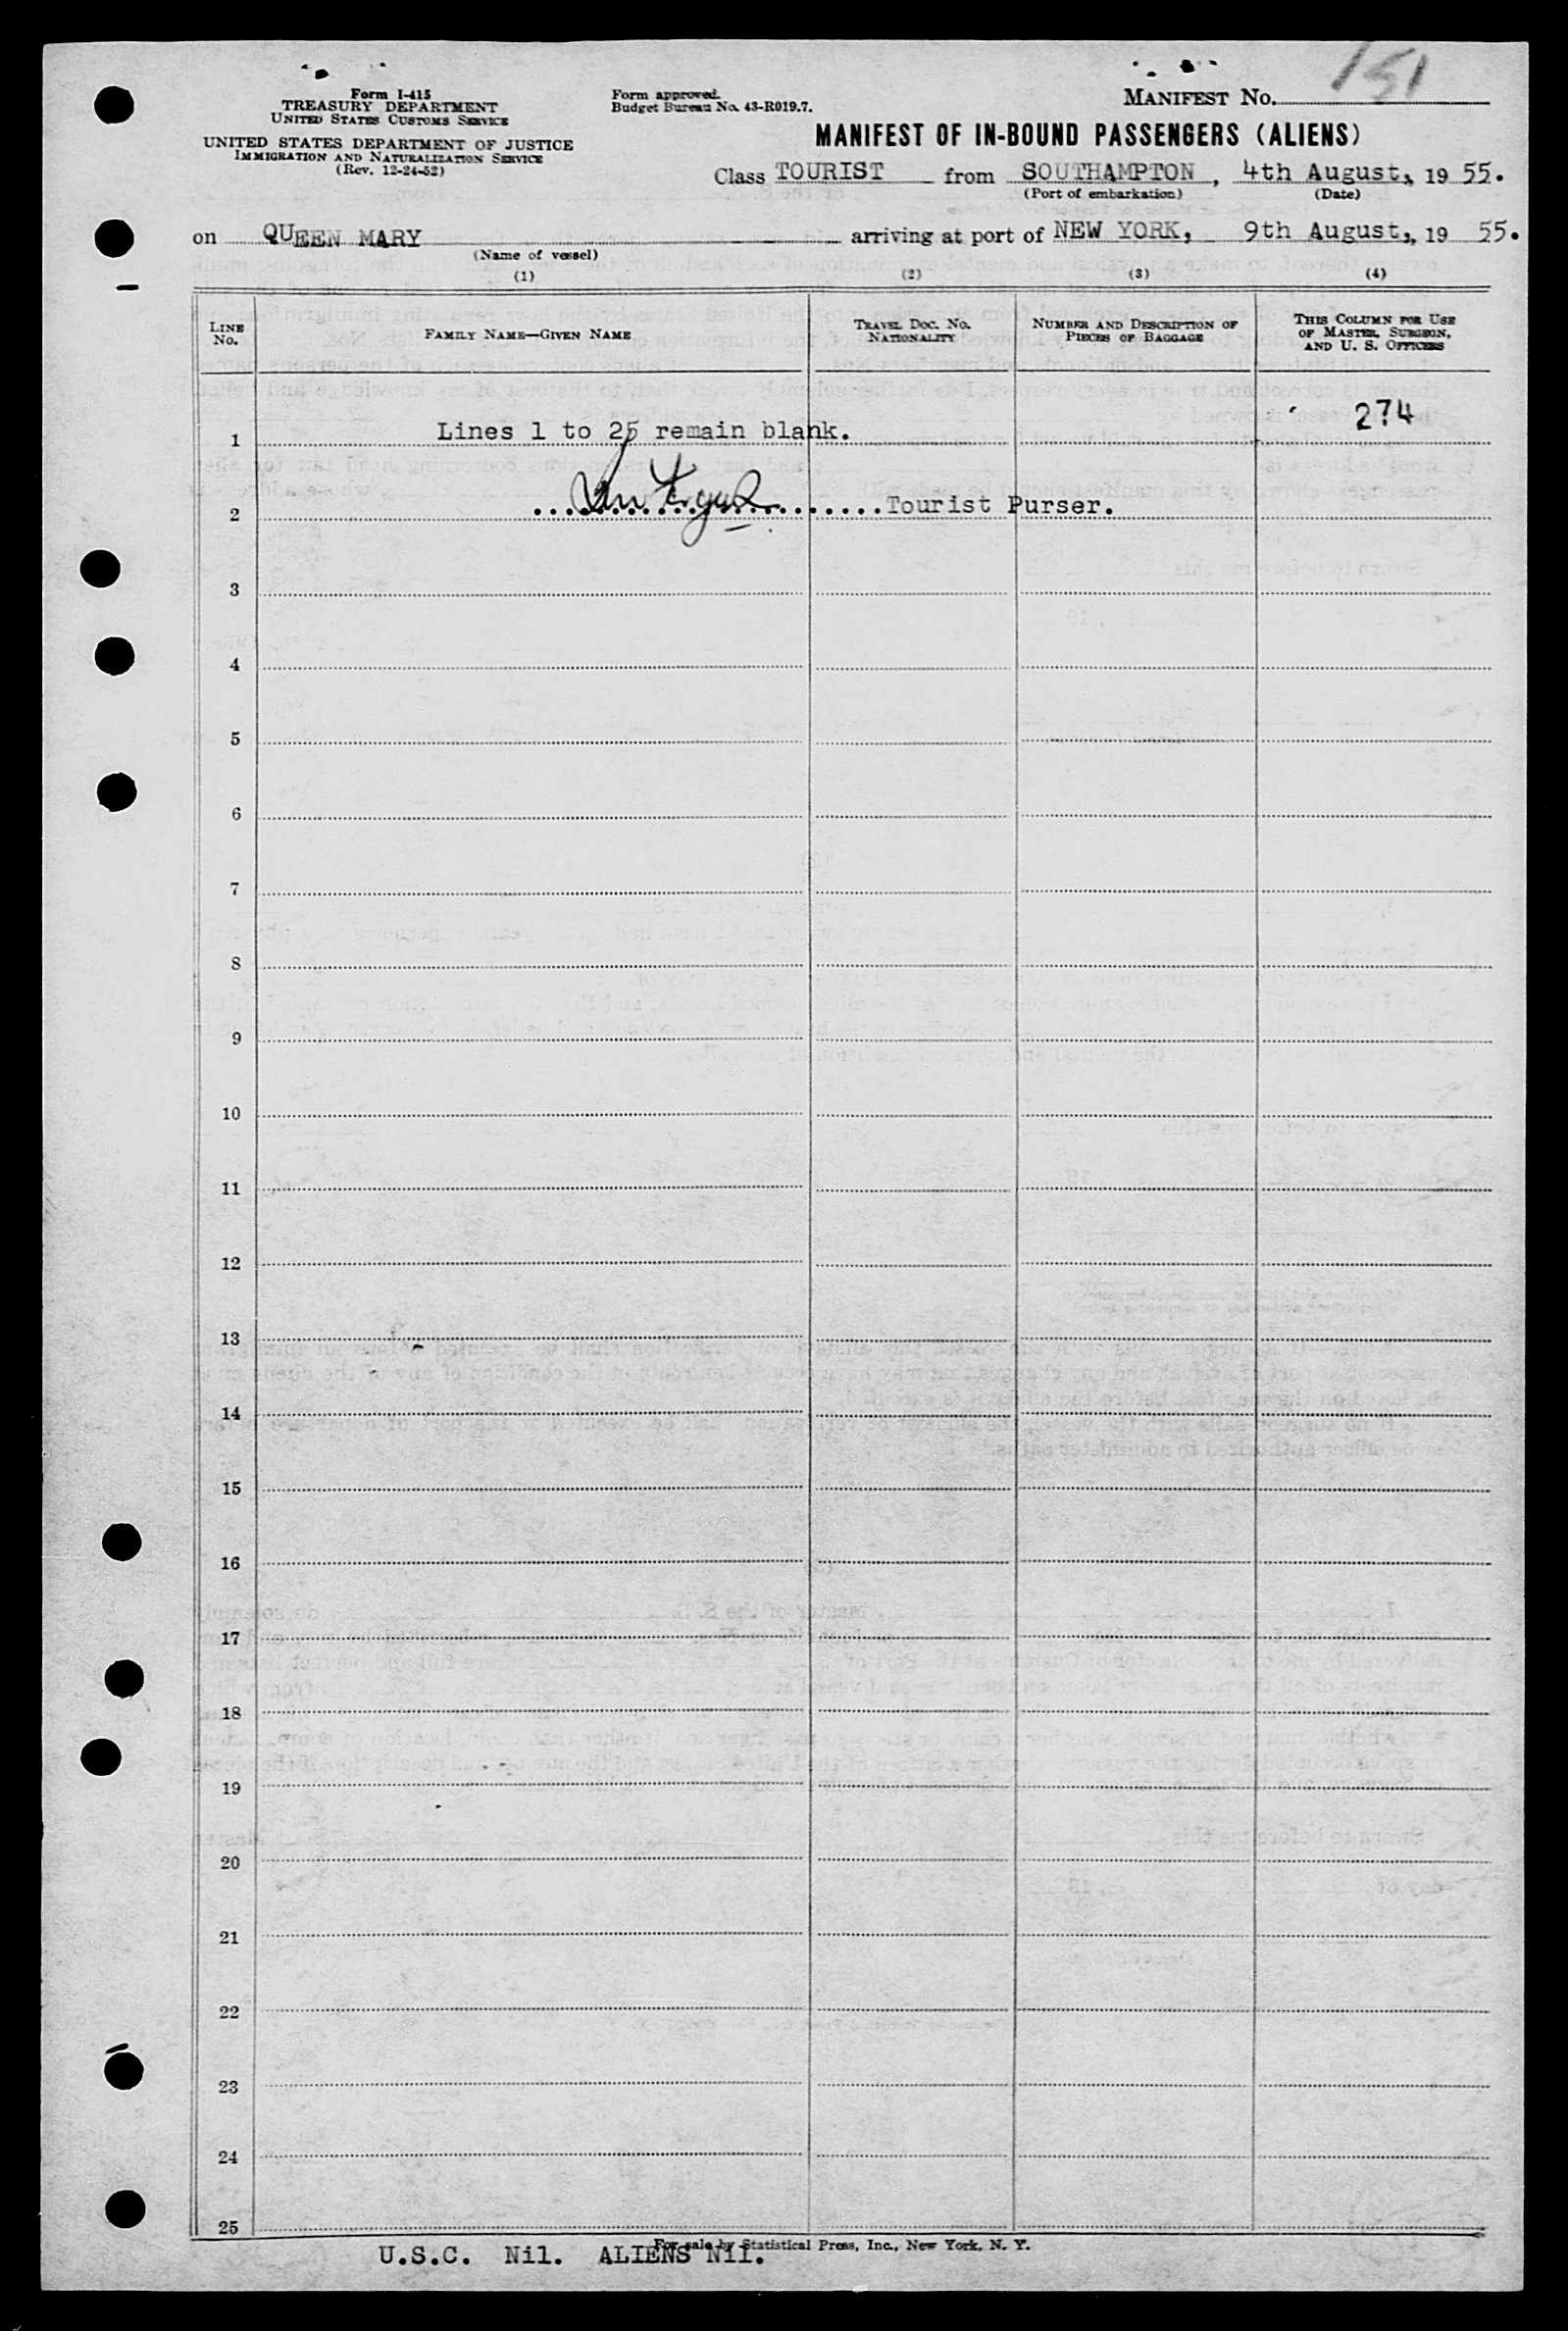 151
Form I-415
TREASURY DEPARTMENT
UNITED STATES CUSTOMS SERVICE
UNITED STATES DEPARTMENT OF JUSTICE
IMMIGRATION AND NATURALIZATION SERVICE
(Rev. 12-24-52)
Form approved.
Budget Bureau No. 43-R019.7.
MANIFEST No.
MANIFEST OF IN-BOUND PASSENGERS (ALIENS)
Class TOURIST from SOUTHAMPTON, 4th August, 1955.
(Port of embarkation) (Date)
on QUEEN MARY arriving at port of NEW YORK, 9th August, 1955.
(Name of vessel)
(1) (2) (3) (4)
LINE No.
FAMILY NAME—GIVEN NAME
TRAVEL DOC. NO. NATIONALITY
NUMBER AND DESCRIPTION OF PIECES OF BAGGAGE
THIS COLUMN FOR USE OF MASTER, SURGEON, AND U. S. OFFICERS
1 Lines 1 to 25 remain blank. 274
2 Tourist Purser.
3
4
5
6
7
8
9
10
11
12
13
14
15
16
17
18
19
20
21
22
23
24
25
For sale by Statistical Press, Inc., New York, N. Y.
U.S.C. Nil. ALIENS Nil.